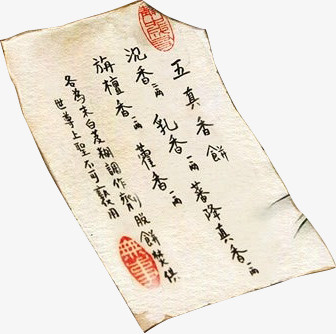 五真香餅
沉香一兩 乳香一兩 蕃降真香一兩
旃檀香一兩 藿香一兩
各為末白芨糊調作劑脫餅焚供
世尊上聖不可褻用
無事